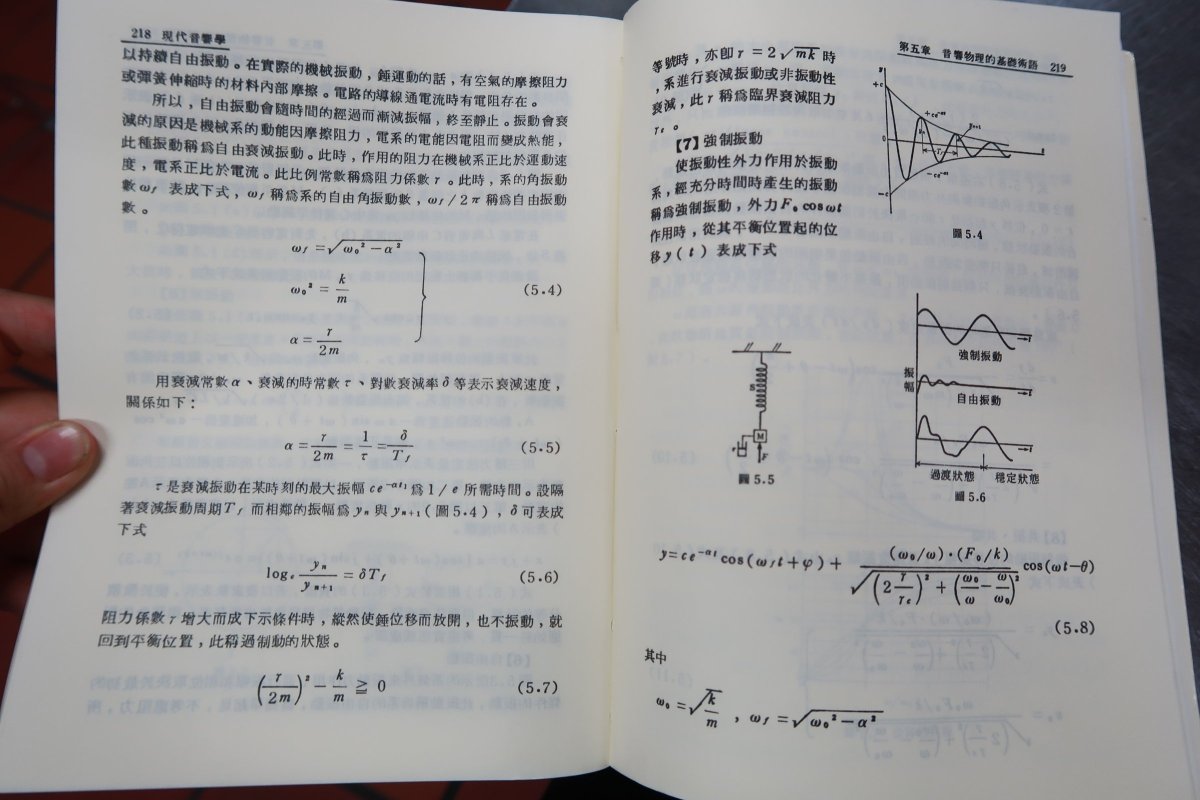 218 現代音響學
以持續自由振動。在實際的機械振動,錘運動的話,有空氣的摩擦阻力
或彈簧伸縮時的材料內部摩擦。電路的導線通電流時有電阻存在。
所以,自由振動會隨時間的經過而漸減振幅,終至靜止。振動會衰
減的原因是機械系的動能因摩擦阻力,電系的電能因電阻而變成熱能,
此種振動稱爲自由衰減振動。此時,作用的阻力在機械系正比於運動速
度,電系正比於電流。此比例常數稱爲阻力係數 r。此時,系的角振動
數 ω_f 表成下式,ω_f 稱爲系的自由角振動數,ω_f/2π 稱爲自由振動
數。
ω_f = √(ω₀² − α²)
ω₀² = k/m (5.4)
α = r/2m
用衰減常數 α、衰減的時常數 τ、對數衰減率 δ 等表示衰減速度,
關係如下:
α = r/2m = 1/τ = δ/T_f (5.5)
τ 是衰減振動在某時刻的最大振幅 ce^(−αt₁) 爲 1/e 所需時間。設隔
著衰減振動周期 T_f 而相鄰的振幅爲 y_n 與 y_(n+1)(圖5.4),δ 可表成
下式
log_e y_n/y_(n+1) = δT_f (5.6)
阻力係數 r 增大而成下示條件時,縱然使錘位移而放開,也不振動,就
回到平衡位置,此稱過制動的狀態。
(r/2m)² − k/m ≧ 0 (5.7)
第五章 音響物理的基礎術語 219
等號時,亦卽 r = 2√mk 時
,系進行衰減振動或非振動性
衰減,此 r 稱爲臨界衰減阻力
r_c。
【7】強制振動
使振動性外力作用於振動
系,經充分時間時產生的振動
稱爲強制振動,外力 F₀ cos ωt
作用時,從其平衡位置起的位
移 y(t) 表成下式
+c
0
−c
圖5.4
S
M
r
F
圖5.5
振幅
強制振動
t
自由振動
t
t
過渡狀態 穩定狀態
圖5.6
y = ce^(−αt) cos(ω_f t + φ) + (ω₀/ω)·(F₀/k) / √((2 r/r_c)² + (ω₀/ω − ω/ω₀)²) cos(ωt−θ)
(5.8)
其中
ω₀ = √(k/m) , ω_f = √(ω₀² − α²)